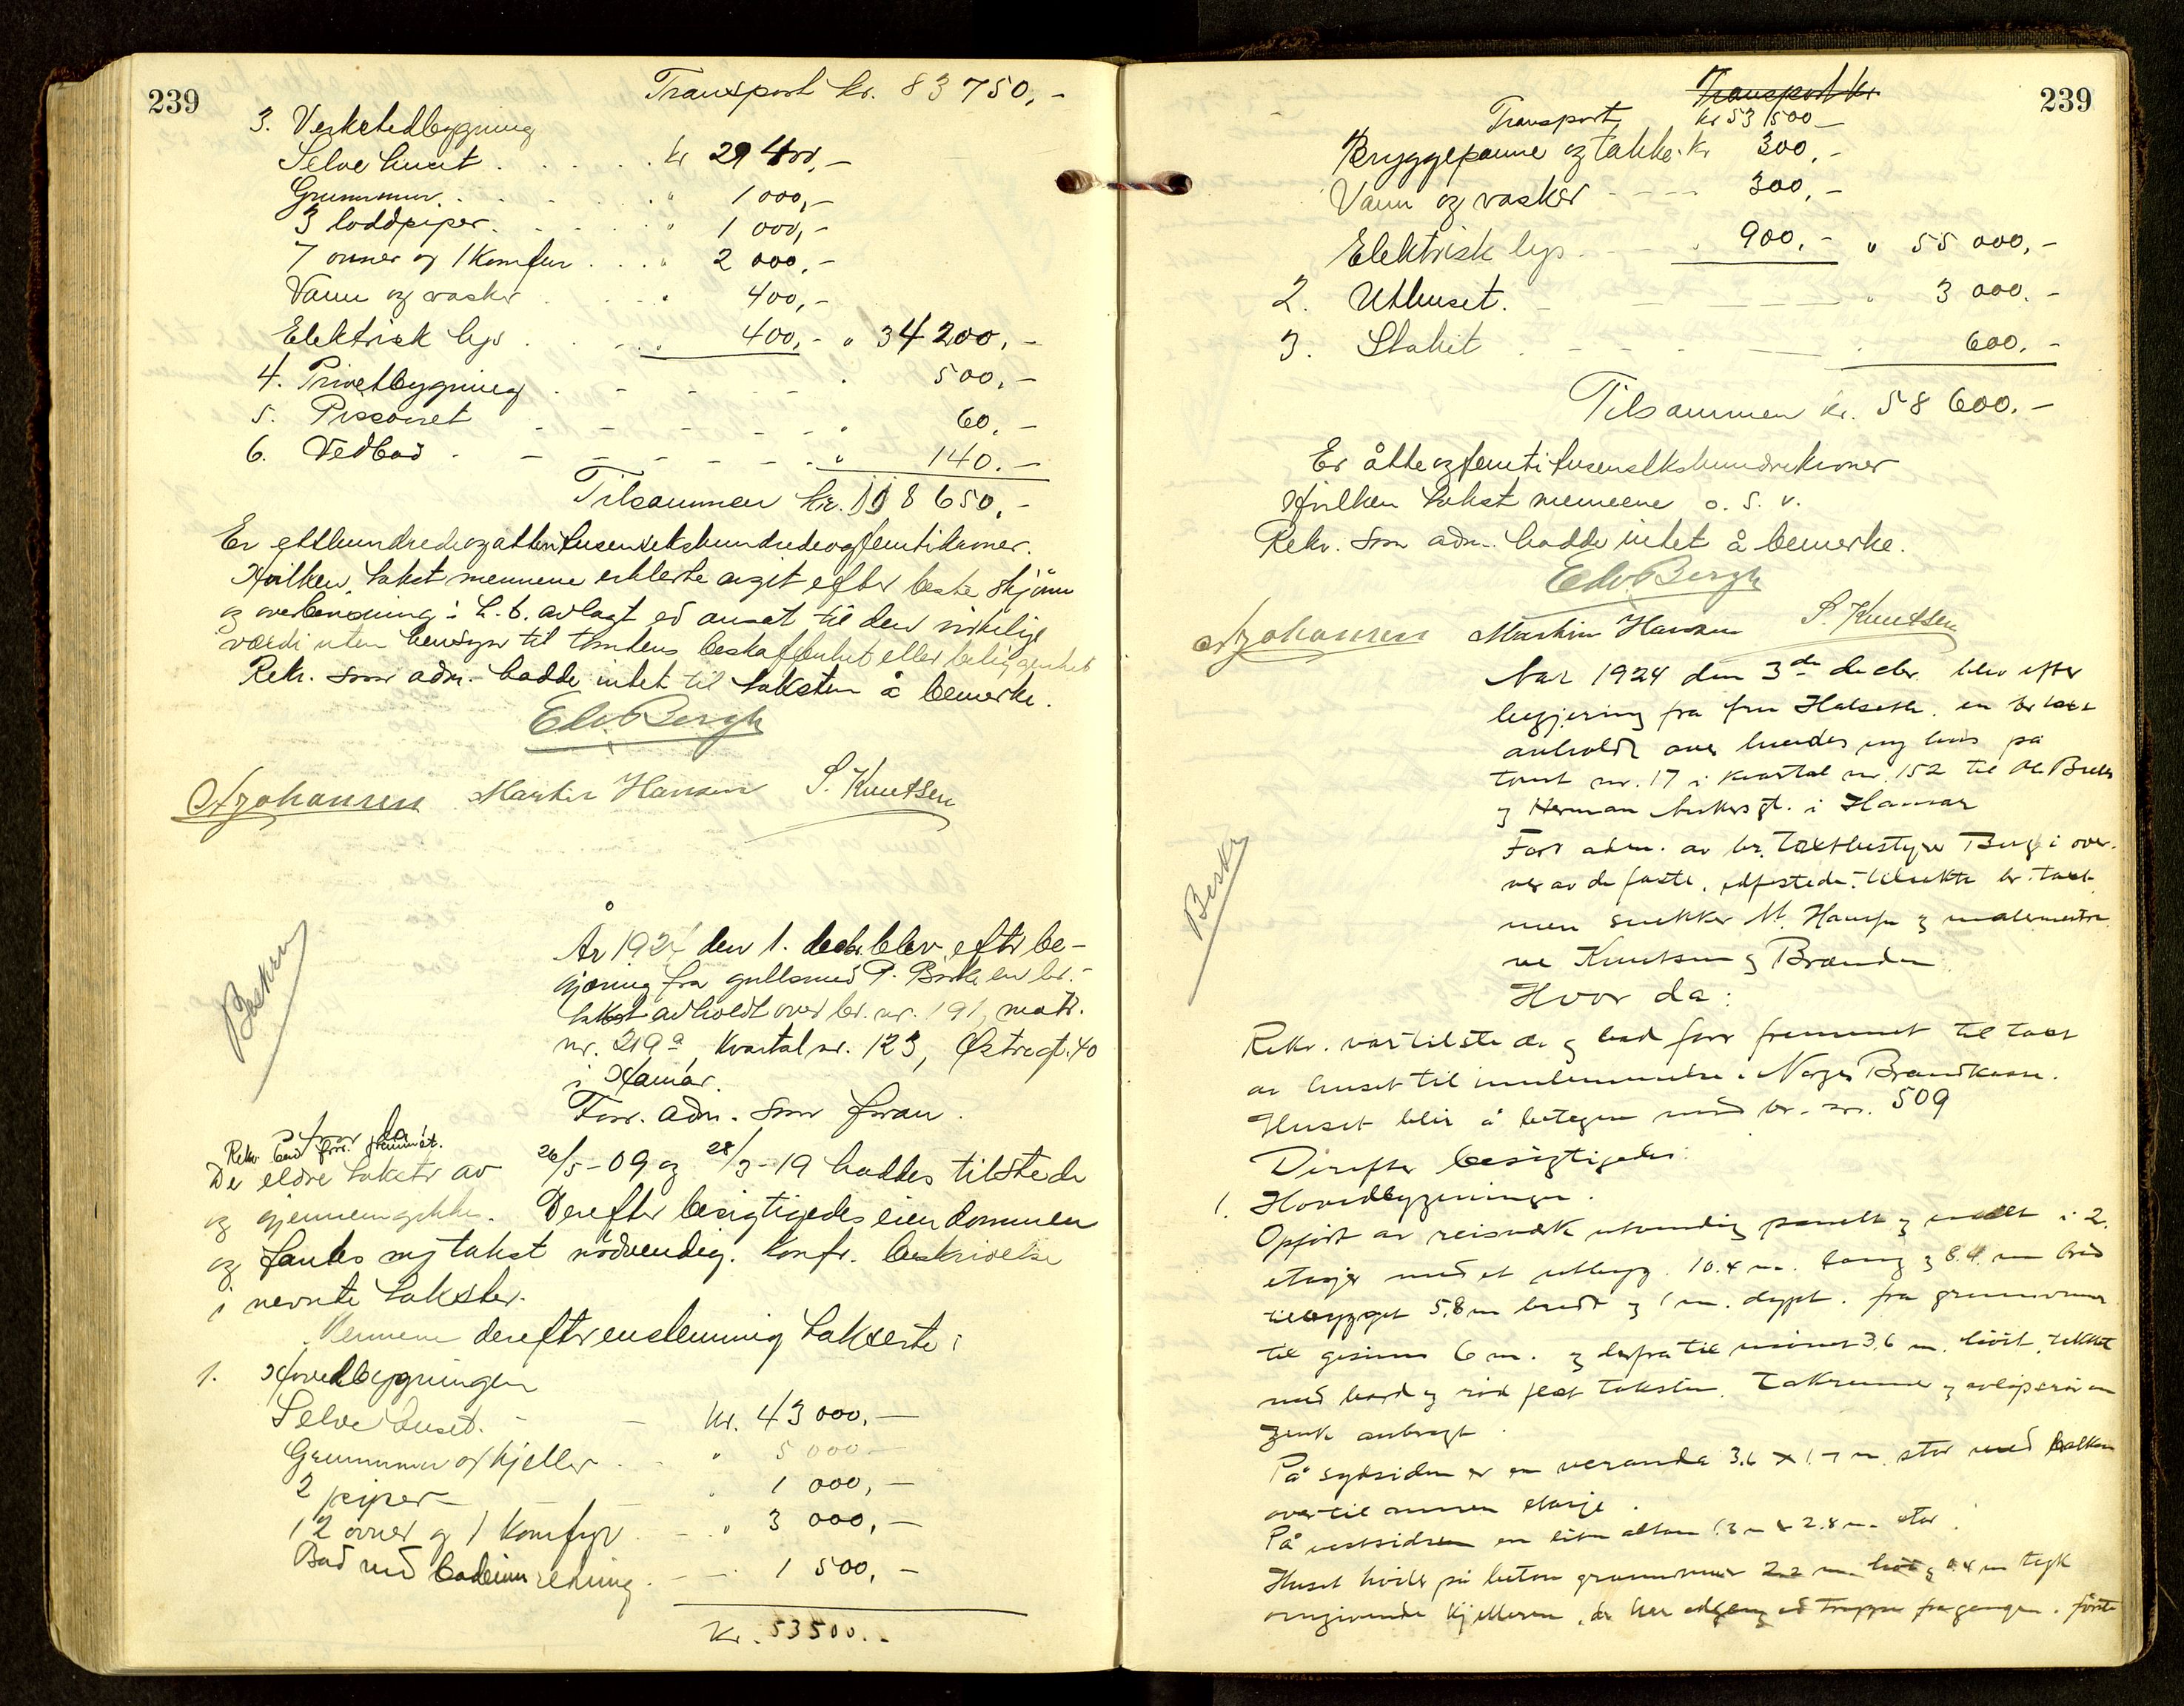 239
Transport kr. 83 750,-
3. Verkstedbygning
Selve huset . . . . . kr 29 400,-
Grunnmur. . . . . . " 1 000,-
3 loddpiper. . . . . " 1 000,-
7 ovner og 1 Komfur . . . " 2 000,-
Vann og vasker . . . . " 400,-
Elektrisk lys . . . " 400,- " 34 200,-
4. Privetbygning . - - - - " 500,-
5. Pissoiret - - - - - " 60,-
6. Vedbod . - - - - - " 140.-
Tilsammen kr. 118 650,-
Er etthundredeogattentusensekshundredeogfemtikroner.
Hvilken takst mennene erklerte avgit efter beste skjønn
og overbevisning i h. t. avlagt ed ansat til den virkelige
værdi uten hensyn til tomtens beskaffenhet eller beliggenhet
Rekv. som adm. hadde intet til taksten å bemerke.
Edv. Bergh
A Johansen Martin Hansen S. Knutsen
Beskrev
År 1924 den 1. decbr. blev efter be-
gjæring fra gullsmed P. Borke en br.-
takst avholdt over br. nr. 191, matr.
nr. 219a, Kvartal nr. 123, Østregt. 40
i Hamar.
Forr. adm. som foran.
Hvor da!
Rekv. bad forr. fremmet.
De eldre takster av 26/5-09 og 28/3-19 haddes tilstede
og gjennemgikkes. Derefter besigtigedes eiendommen
og fantes ny takst nødvendig. Konfr. beskrivelse
i nevnte takster.
Mennene derefter enstemmig takserte:
1. Hovedbygningen
Selve huset. - - kr. 43 000,-
Grunnmur og kjeller . - " 5 000.-
2 piper - " 1 000,-
12 ovner og 1 Komfyr . - " 3 000,-
Bad med badeinnredning . - - 1 500,-
Kr. 53500.-
239
Transport kr
Transport kr 53 500-
Bryggepanne og takke. kr 300,-
Vann og vasker - - - - 300,-
Elektrisk lys. - - " 900.- " 55 000,-
2. Uthuset. - - - - " 3 000.-
3. Stakit . - - - - . 600.-
Tilsammen kr. 58 600.-
Er åtteogfemtitusensekshundrekroner
Hvilken takst mennene o. s. v.
Rekv. som adm. hadde intet å bemerke.
Edv. Bergh
A Johansen Martin Hansen S. Knutsen
Beskr
Aar 1924 den 3de decbr. blev efter
begjering fra fru Halseth en br. taxt
avholdt over hendes ny hus på
tomt nr. 17 i kvartal nr. 152 til
og Herman Ankersgt. i Hamar
Forr. adm. av br. taxtbestyrer Berg i over-
vær av de faste, edfestede tilsatte br. taxt
men snekker M. Hansen og malermestre
ne Knutsen og Brenden
Hvor da:
Rekv. var tilstede og bad forr fremmet til taxt
av huset til innlemmelse i Norges Brandkasse.
Huset blir å betegne med br. nr. 509
Derefter besigtigedes:
1. Hovedbygningen.
Opført av reisverk utvendig panelt og malt i 2.
etasjer med et utbygg. 10.4 m. lang og 8.4 m bred
tilbygget 5.8 m bredt og 1 m. dypt. fra grunnmur
til gesims 6 m. og derfra til mønet 3.6 m. høit, tekket
med bord og rød flat taksten. Takrenne og avløpsrør av
zink anbragt.
På sydsiden er en veranda 3.6 x 1.7 m. stor med balkon
over til annen etasje.
På vestsiden en liten altan 1.3 m x 2.8 m. stor.
Huset hviler på beton grunnmur 2.2 m. høi og 0.4 m tyk
omgivende kjelleren, der har adgang ad trappe fra gangen. første